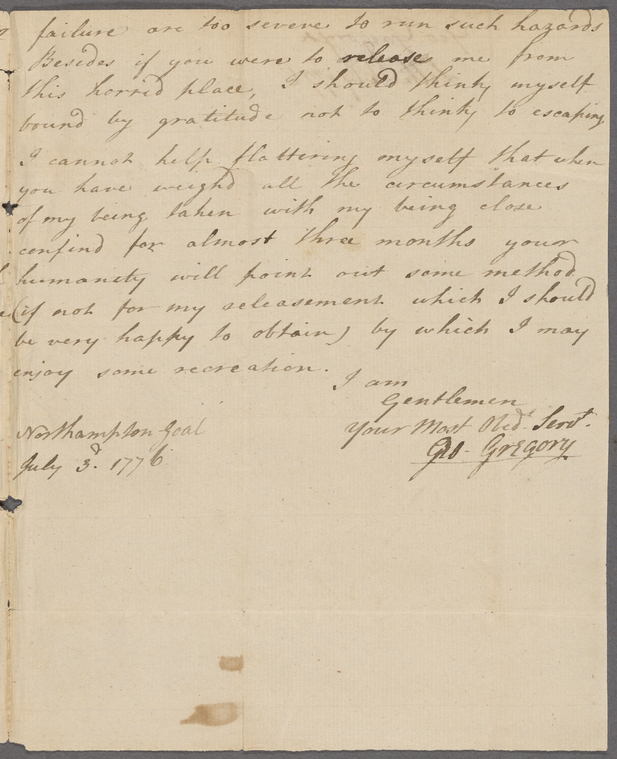 failure are too severe to run such hazards
Besides if you were to release me from
this horrid place, I should think myself
bound by gratitude not to think to escaping
I cannot help flattering myself that when
you have weighd all the circumstances
of my being taken with my being close
confind for almost three months your
humanity will point out some method
(if not for my releasement which I should
be very happy to obtain) by which I may
enjoy some recreation.
I am
Gentlemen
Your Most Obedt. Servt.
Geo- Gregory
Northampton Goal
July 3d. 1776